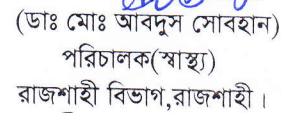 (ডাঃ মোঃ আবদুস সোবহান)
পরিচালক(স্বাস্থ্য)
রাজশাহী বিভাগ,রাজশাহী।